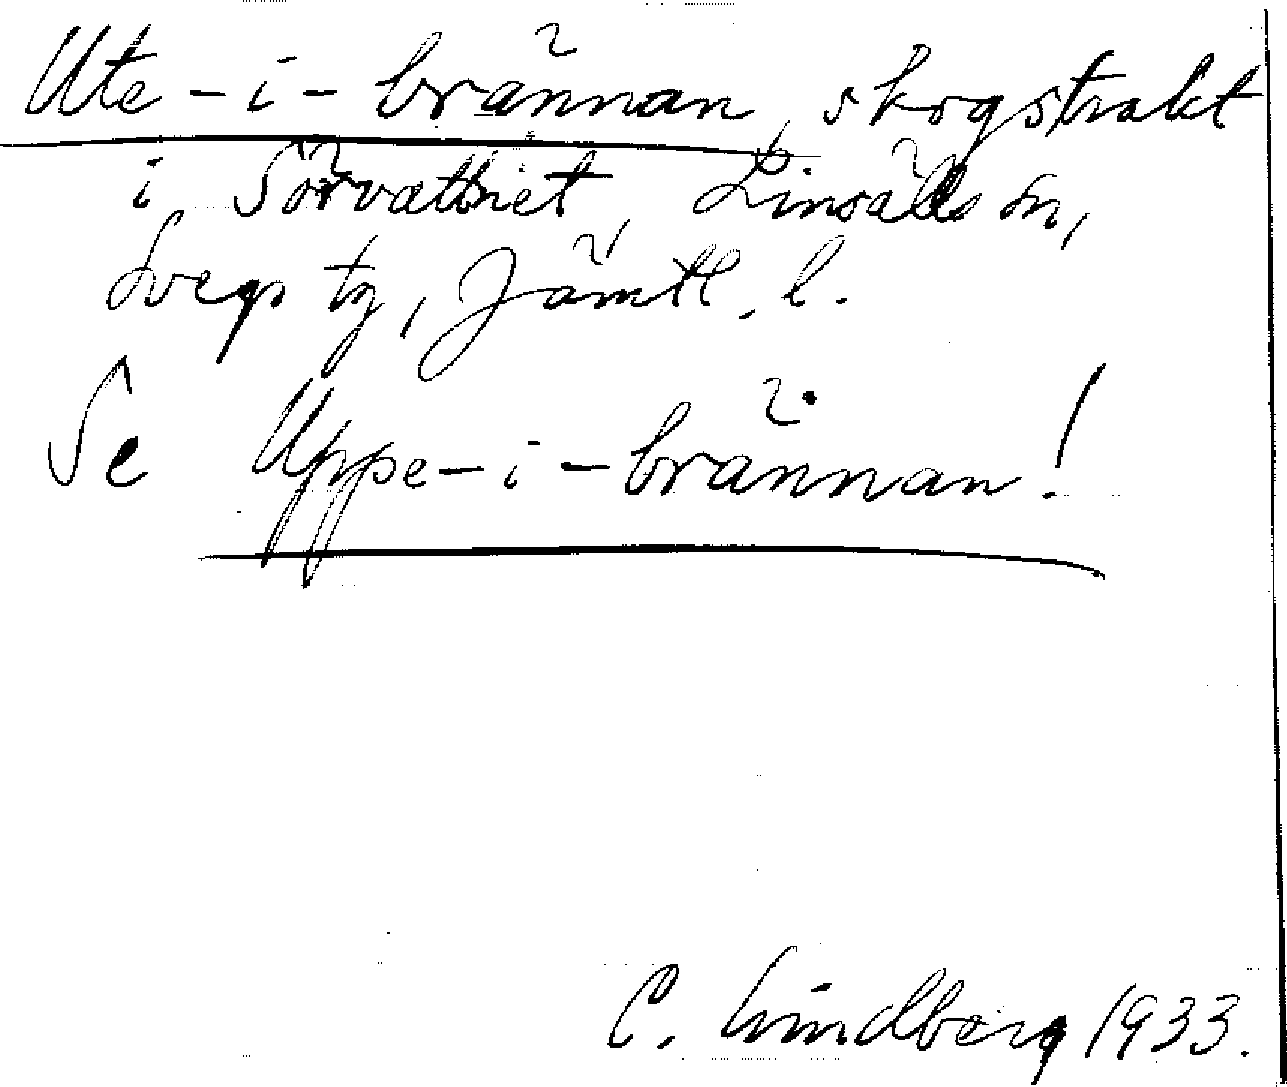 Ute-i-brännan, skogstrakt
i Sörvattnet, Linsälls sn,
Svegs tg, Jämtl. l.
Se Uppe-i-brännan!
C. Lindberg 1933.